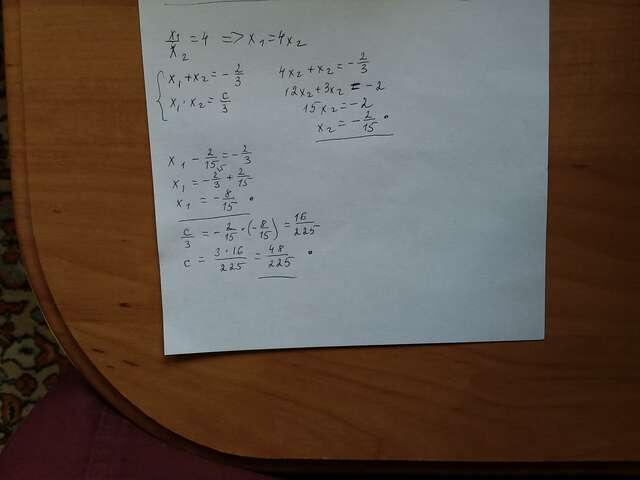 x₁/x₂ = 4 => x₁ = 4x₂
x₁ + x₂ = -2/3
x₁ · x₂ = c/3
4x₂ + x₂ = -2/3
12x₂ + 3x₂ = -2
15x₂ = -2
x₂ = -2/15 .
x₁ - 2/15 = -2/3
x₁ = -2/3 + 2/15
x₁ = -8/15 .
c/3 = -2/15 · (-8/15) = 16/225
c = 3·16/225 = 48/225 .